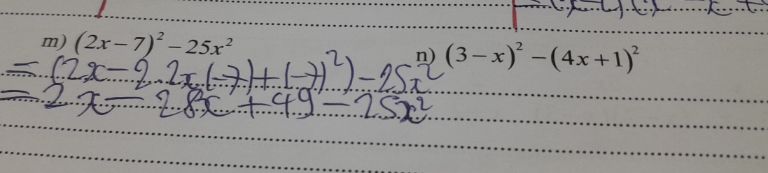 m) (2x − 7)² − 25x²
n) (3 − x)² − (4x + 1)²
= (2x − 2.2x.(−7) + (−7)²) − 25x²
= 2x − 28x + 49 − 25x²